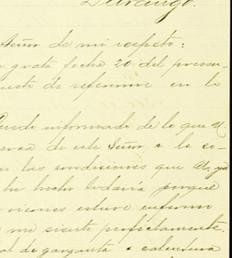 Durango.
Señor de mi respeto:
grata fecha 20 del presen-
de referirme en lo
informado de lo que U.
de este Señor a la
las condiciones que
he hecho todavía porque
estuve enfermo
me siento perfectamente.
de garganta o calentura